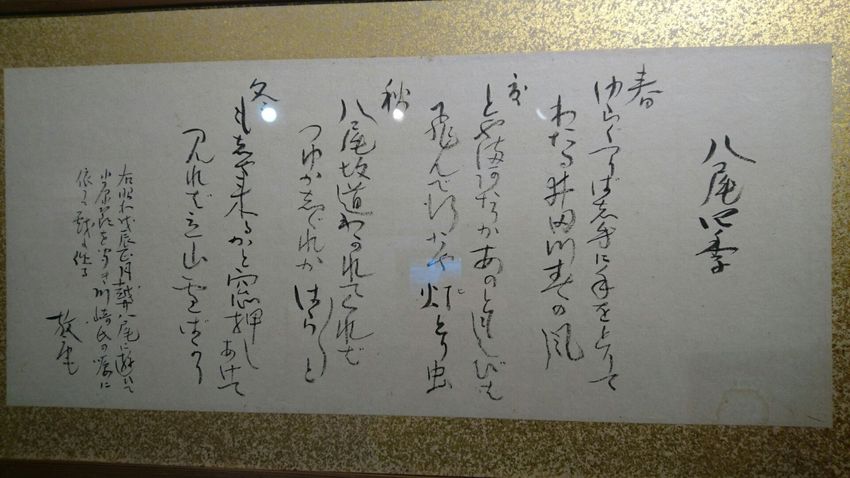 八尾四季
春
ゆらぐつりば志手に手をとりて
わたる井田川春の風
夏
とやまあたりかあのともしびは
飛んで行かや灯とり虫
秋
八尾坂道わかれてくれば
つゆか志ぐれか はら〳〵と
冬
もしや来るかと窓押しあけて
みれば立山雪ばかり
右昭和戊辰正月越中八尾に遊びて
小原節を聞き川崎氏の需に
依て戯に作る
放庵